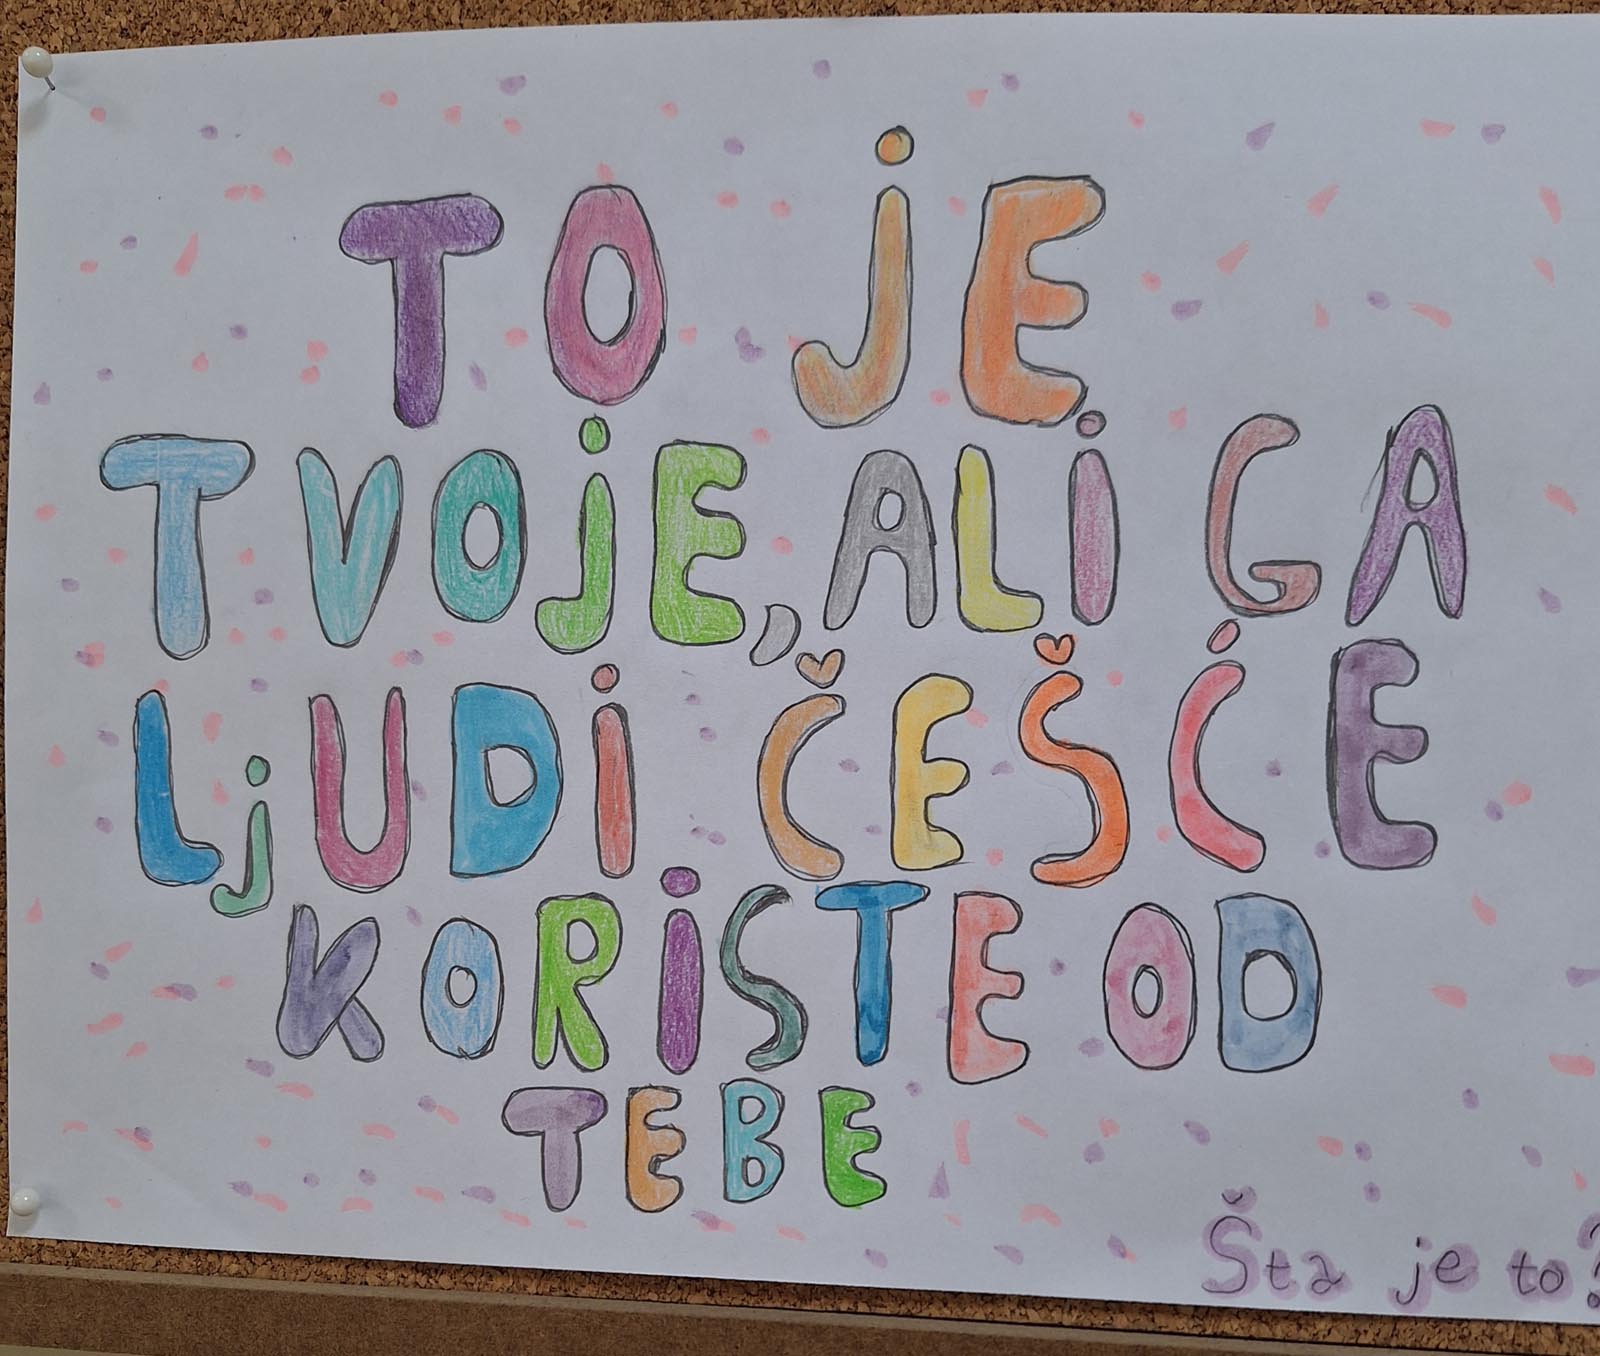 TO JE
TVOJE, ALI GA
LJUDI ČEŠĆE
KORISTE OD
TEBE
Šta je to?